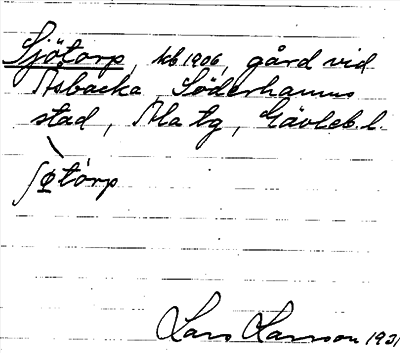 Sjötorp, kb 1906, gård vid
Åsbacka Söderhamns
stad, Ala tg, Gävleb. l.
Lars Larsson 1931